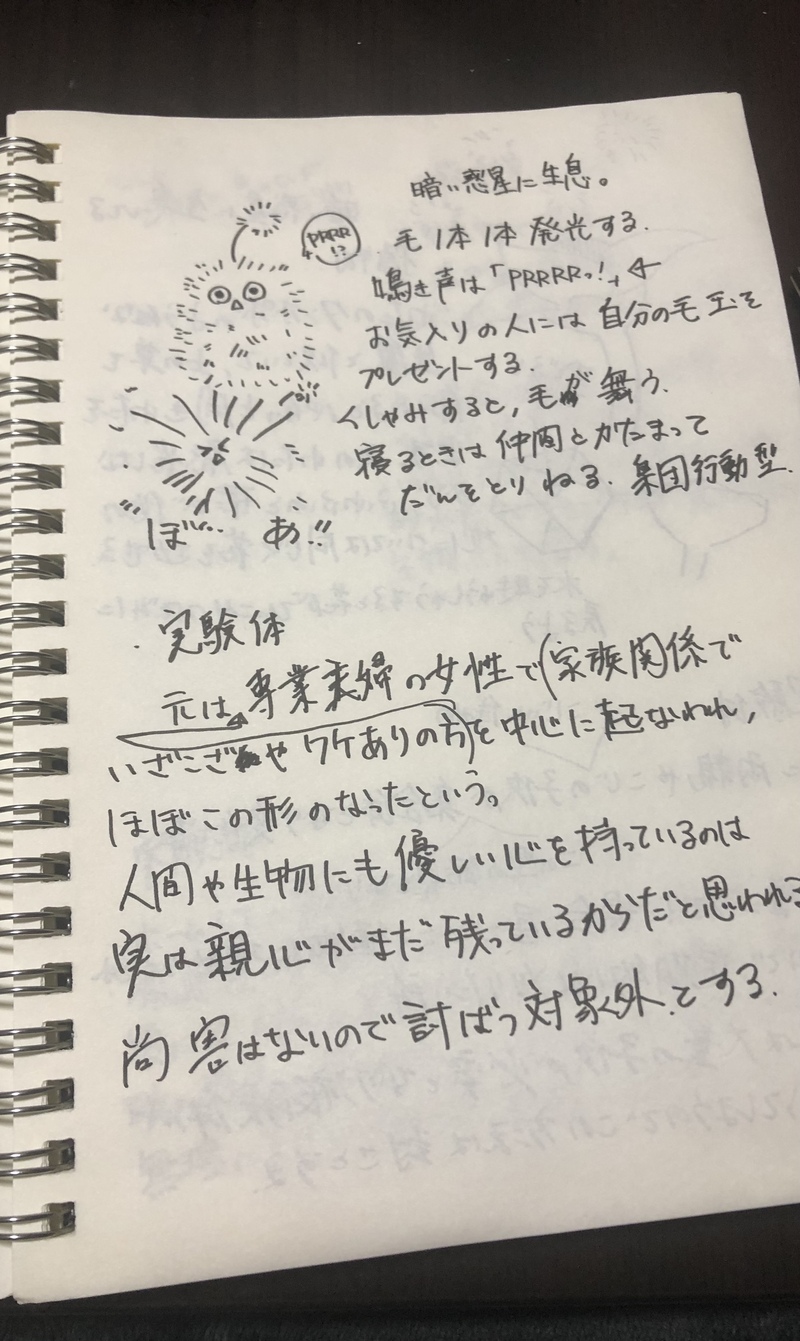 暗い惑星に生息。
PRRR
!?
毛1本1本 発光する.
鳴き声は「PRRRRっ!」←
お気入りの人には 自分の毛玉を
プレゼントする.
くしゃみすると, 毛が 舞う.
寝るときは 仲間とかたまって
だんをとり ねる. 集団行動型.
ぼ… あ!!
・実験体
元は 専業主婦の女性で(家族関係で
いざこざや ワケありの方)を中心に起なわれ,
ほぼこの形のなったという。
人間や生物にも優しい心を持っているのは
実は親心がまだ残っているからだと思われる
尚 害はないので討ばつ対象外.とする.